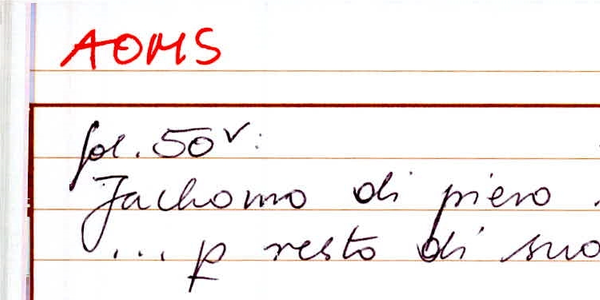 AOMS
fol. 50v:
Jachomo di piero
... p resto di suo